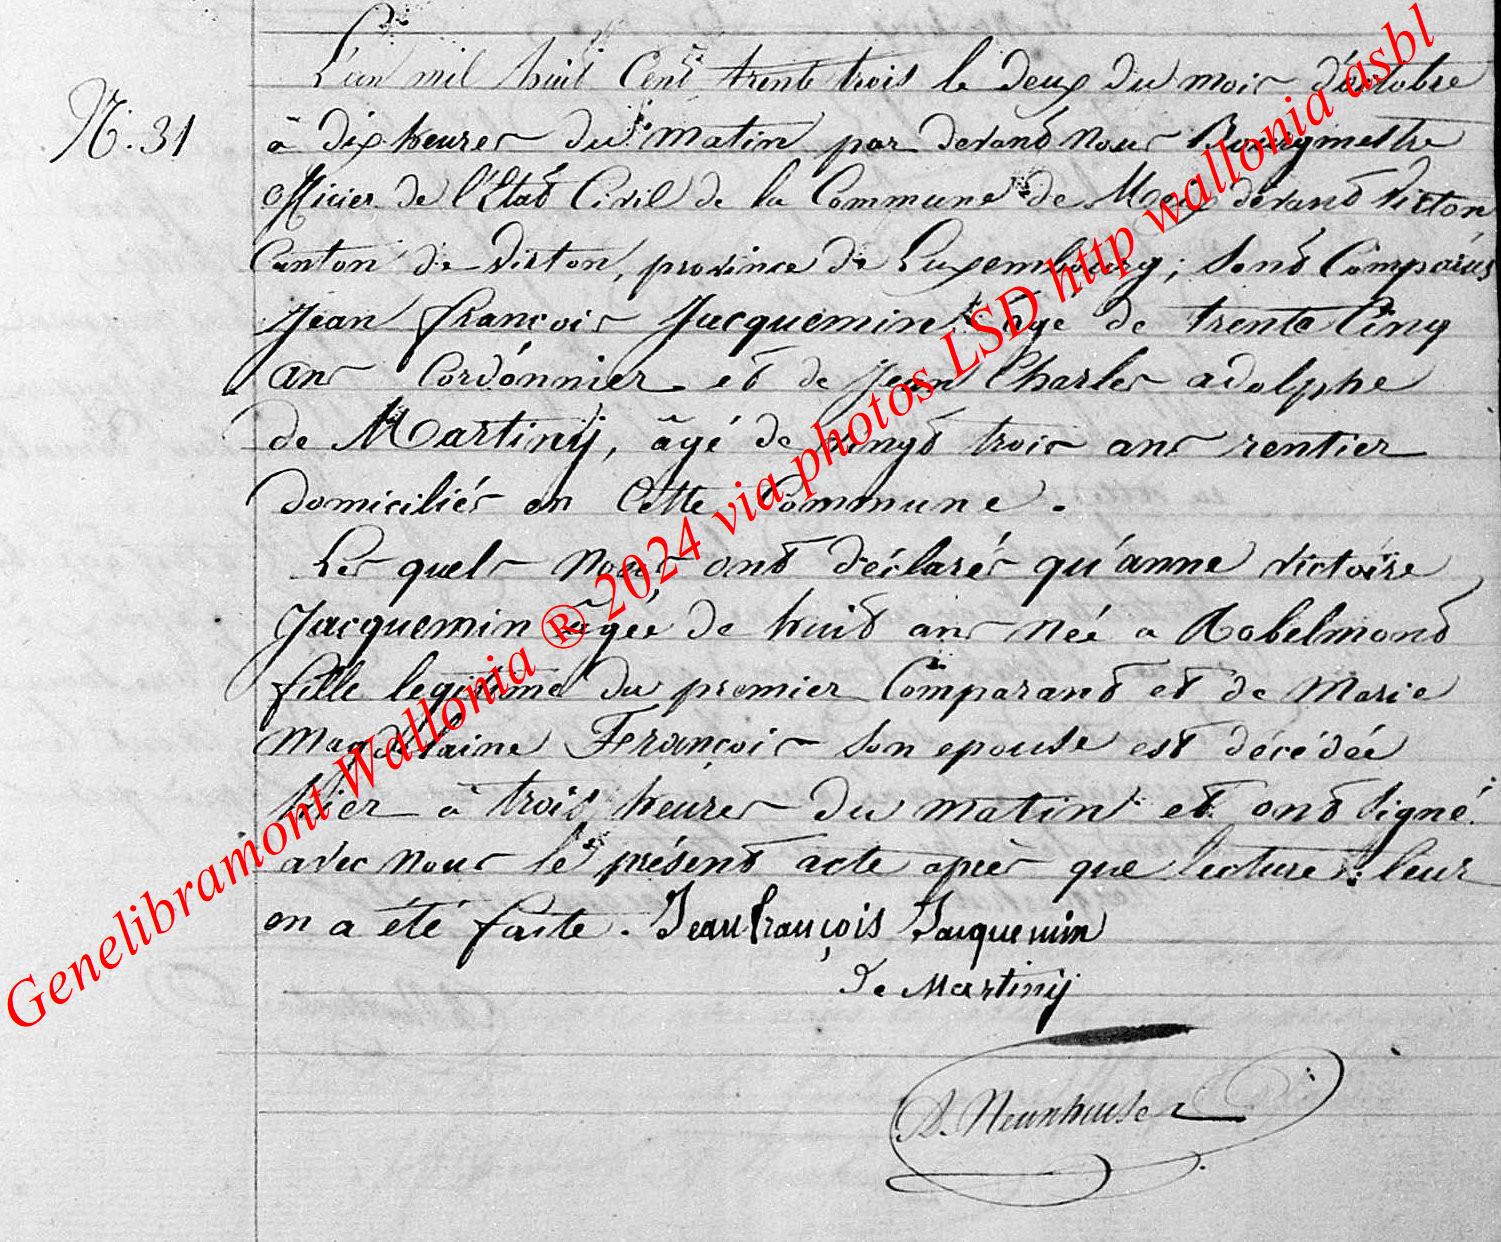 N. 31
L'an mil huit Cent trente trois le deux du mois d'octobre
à dix heures du matin par devant nous Bourgmestre
officier de l'Etat Civil de la Commune de Meix devant Virton,
Canton de Virton, province de Luxembourg; sont Comparus
Jean françois Jacquemin, âgé de trente Cinq
ans Cordonnier et de Jean Charles adolphe
de Martiny, âgé de vingt trois ans rentier
domiciliés en Cette Commune.
Les quels nous ont déclarés qu'anne victoire
Jacquemin âgée de huit ans née a Robelmont
fille legitime du premier Comparant et de Marie
Magdelaine François son epouse est décédée
hier à trois heures du matin et ont signé
avec nous le présent acte après que lecture leur
en a été faite. Jean françois Jacquemin
De Martiny
Genelibramont Wallonia ® 2024 via photos LSD http wallonia asbl